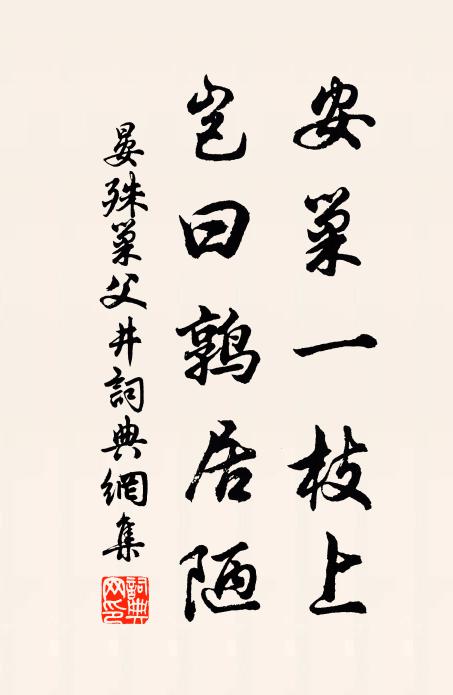 安巢一枝上
岂曰鹑居陋
晏殊巢父井詞典網集
詞典
网印